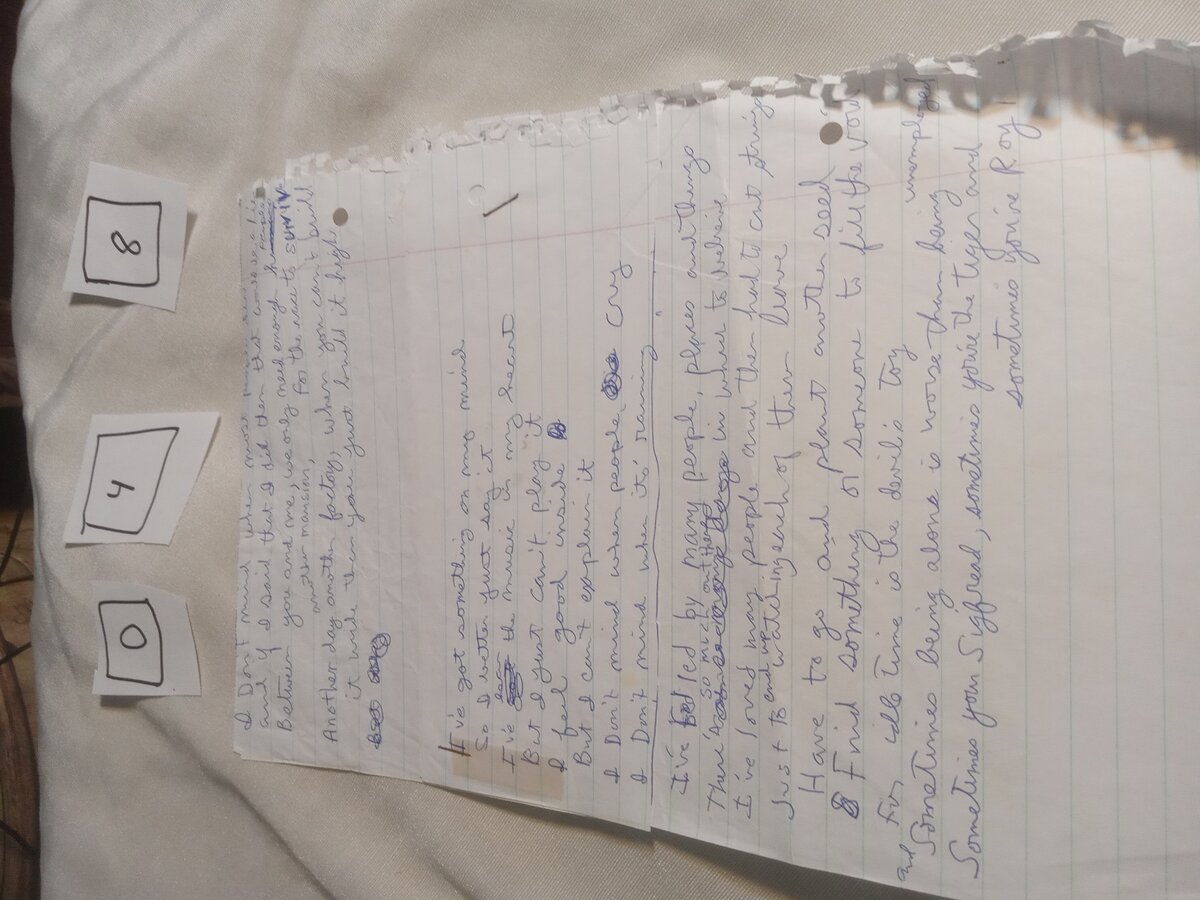 0
4
8
I Don't mind when most
and if I said that I did then that
Between you and me, we only need enough to surviv
another mansion, for the
Another day another factory, when you can't build
it wide then you just build it high
I've got something on my mind
So I better just say it
I've the music in my heart
But I just can't play it
I feel good inside
But I can't explain it
I Don't mind when people Cry
I Don't mind when it's raining
I've led by many people, places and things
There's so much out there in what to believe
I've loved many people and then had to cut strings
Just to end up watching each of them leave
Have to go and plant another seed
Find something or someone to fill the void
For idle time is the devil's toy
and Sometimes being alone is worse than being unemployed
Sometimes your Siffread, sometimes you're the tiger and
sometimes you're Roy